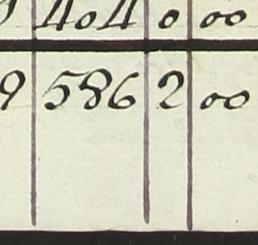 404 0 00
9 586 2 00